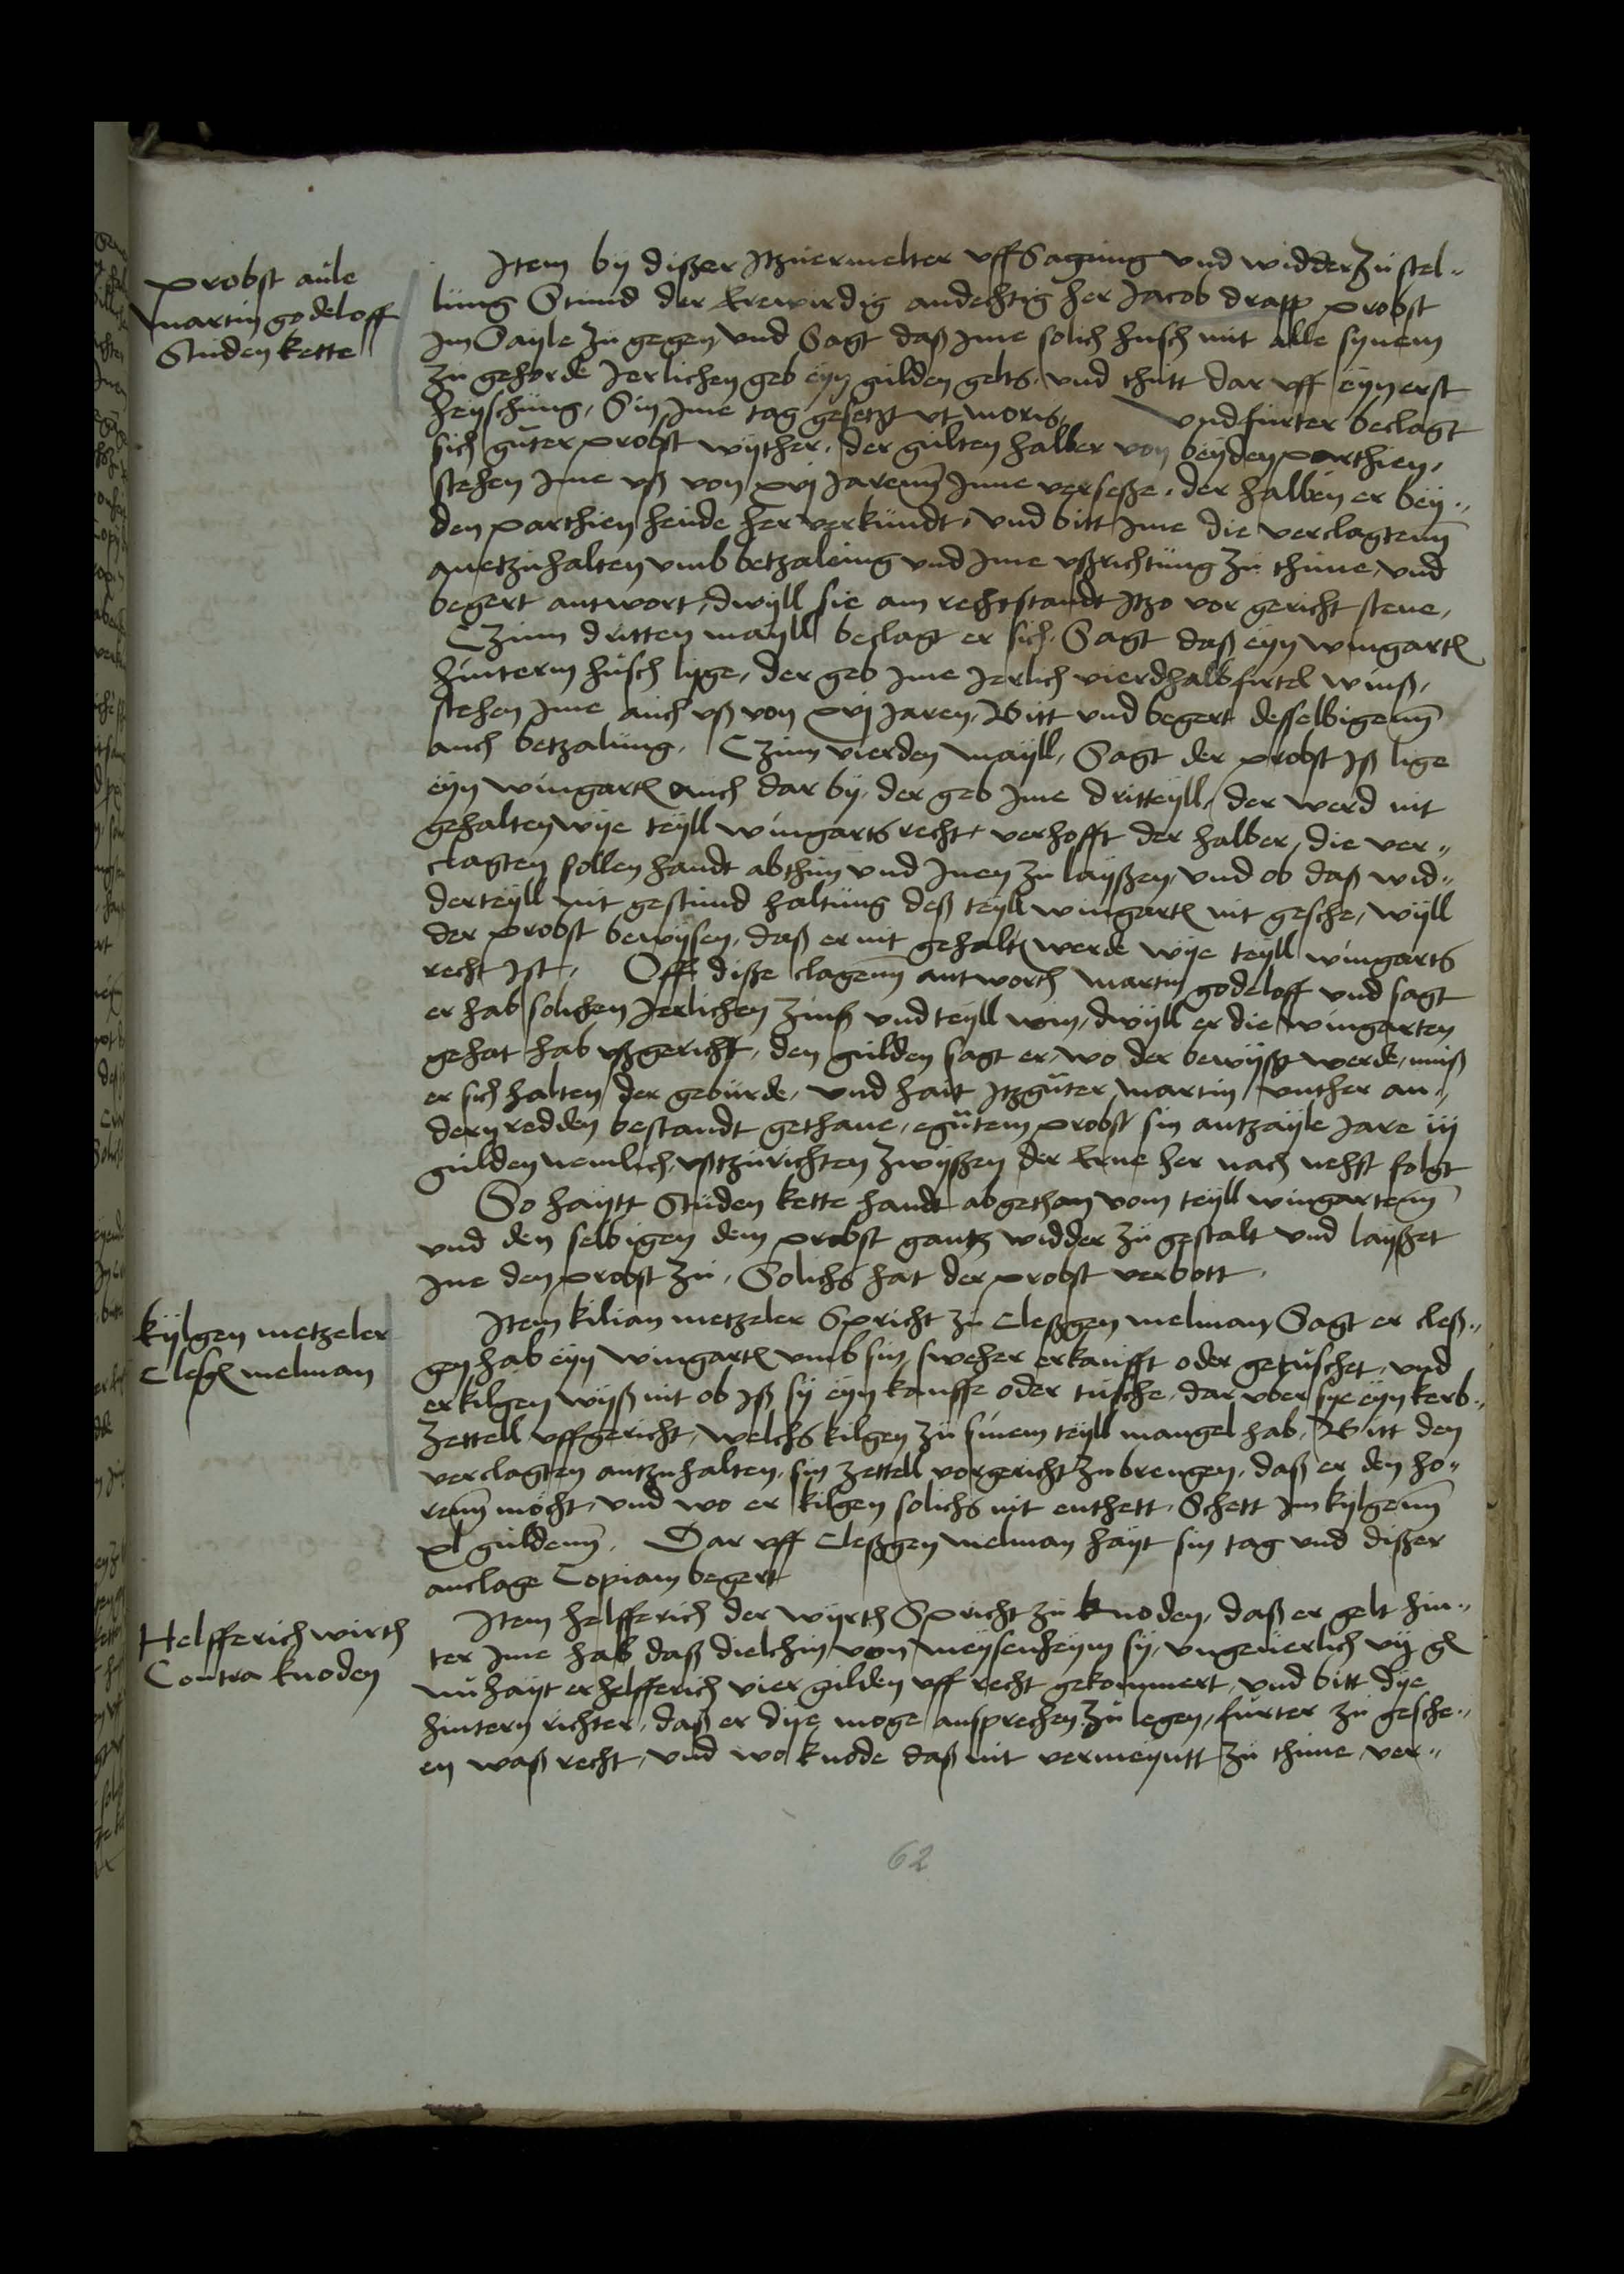 probst aule
martin godeloff
Studen kette
Item by dißer itzuermelter uffsagung und widderzustel„
lung Stund der Erewirdig andechtig her Jacob drapp probst
im Sayle zu gegen und Sagt daß ime solich husch mit alle synem
zu gehorde Jerlichen geb eyn gulden gelts, und thutt dar uff eyn erst
heyschung, Sin ime tag gesetzt ut moris, und furter beclagt
sich guter probst wyther, der gulten halber von beyden parthien,
stehen ime uß von xvj Jarenn Inne verseße, der halben er bey„
den parthien heude her verkundt, und bitt ime die verclagtenn
anetzuhalten umb betzalung und ime ußrichtung zu thune, und
begert antwort, dwyll sie am rechtstandt itzo vor gericht stene,
Czum dritten mayll beclagt er sich, Sagt daß eyn wingart
hinterm husch lyge, der geb ime Jerlich vierdhalb firtel winß,
stehen ime auch uß von xvj Jaren, Bitt und begert desselbigenn
auch betzalung, Czum vierden mayll, Sagt der probst iß lige
eyn wingart auch dar by, der geb ime dritteyll, der werd nit
gehalten wye teyll wingarts recht, verhofft der halber, die ver„
clagten sollen handt abthun und inen zu layßen, und ob daß wid„
derteyll nit gestund haltung deß teyll wingarts nit gesche, wyll
der probst bewysen, daß er nit gehalten werde wye teyll wingarts
recht ist, Off diße clagenn antworth martin godeloff und sagt
er hab solichen Jerlichen zinß und teyll win, dwyll er die wingarten
gehat hab ußgericht, den gulden sagt er, wo der bewyßt werde, muß
er sich halten der geburde, und hait itzguter martin unther an„
dern redden bestandt gethane, egutem probst sin antzayle Jare iij
gulden nemlich, ußtzurichten zwyßen der Erne her nach nehst folgt
So haytt Studen kette handt abgethan vom teyll wingartenn
und den selbigen dem probst gantz widder zu gestalt und layßet
ine den probst zu, Solichs hat der probst verbott
kylgen metzeler
Clesgen melman
Item kilian metzeler Spricht zu Cleßgen melman Sagt er cleß„
gen hab eyn wingart umb sin sweher erkaufft oder getuschet, und
er kilgen wyß nit ob iß sy eyn kauffe oder tusche, dar uber sye eyn kerb„
zettell uffgericht, welchs kilgen zu sinem teyll mangel hab, Bitt den
verclagten antzuhalten, sin zettell vor gericht zu brengen, daß er den ho„
renn mocht, und wo er kilgen solichs nit enthett, Schett im kylgenn
xl guldenn, Dar uff Cleßgen melman hayt sin tag und dißer
anclage Copiam begert
Helfferich wirth
Contra knoden
Item helfferich der wyrth Spricht zu knoden, daß er gelt hin„
ter ime hab daß dielchin von meysenheym sy, ungeuerlich vij gl
nu hayt er helfferich vier gulden uff recht gekommert, und bitt dye
hintern richter, daß er dye moge ansprechen zu legen, furter zu gesche„
en waß recht, und wo knode daß nit vermeyntt zu thune, ver„
62